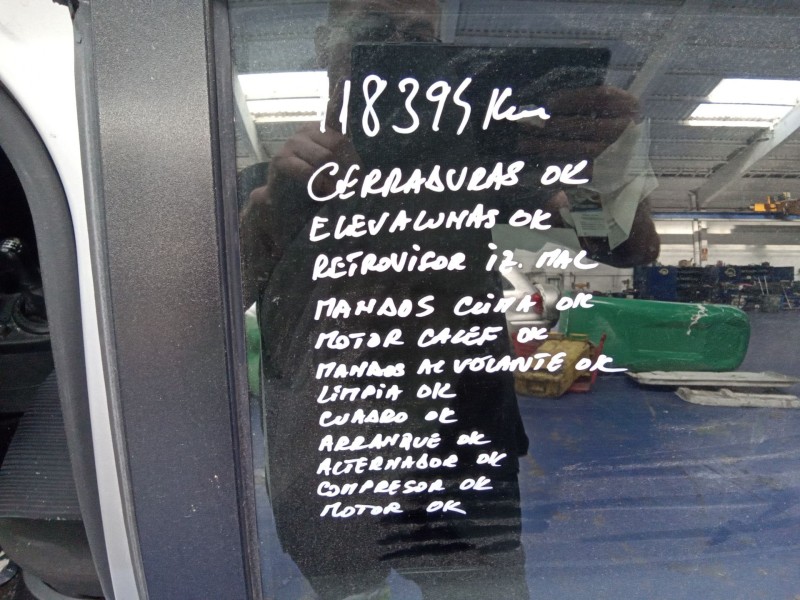 118394 Km
CERRADURAS OK
ELEVALUNAS OK
RETROVISOR IZ. MAL
MANDOS CLIMA OK
MOTOR CALEF OK
MANDOS AL VOLANTE OK
LIMPIA OK
CUADRO OK
ARRANQUE OK
ALTERNADOR OK
COMPRESOR OK
MOTOR OK